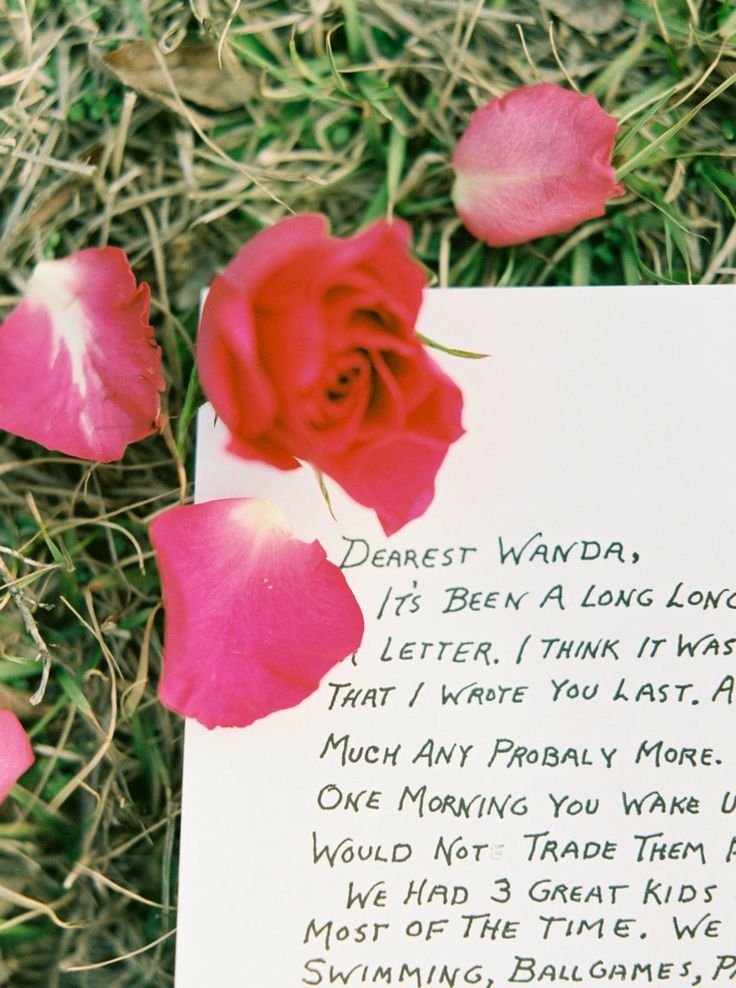 DEAREST WANDA,
IT'S BEEN A LONG LONG
LETTER. I THINK IT WAS
THAT I WROTE YOU LAST.
MUCH ANY PROBALY MORE.
ONE MORNING YOU WAKE
WOULD NOT TRADE THEM
WE HAD 3 GREAT KIDS
MOST OF THE TIME. WE
SWIMMING, BALLGAMES,